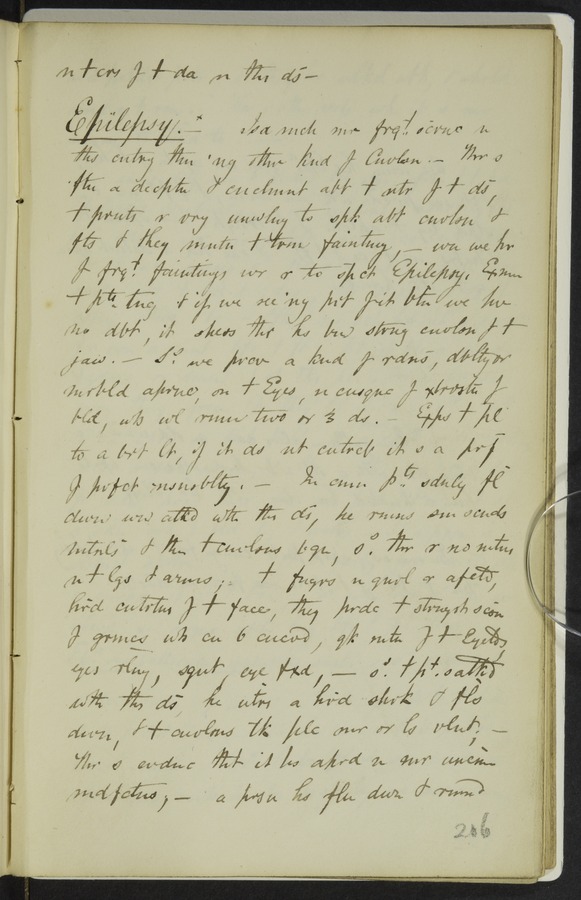 n t crs f t da n ths ds —
Epilepsy. — Is a mch mr frqt. ocrnc n
ths cntry thn 'ny othr kind f Cnvlsn. — Thr s
ftn a decptn & cnclmnt abt t ntr f t ds,
t prnts r vry unwlng to spk abt cnvlsn &
fts & they mntn t trm fainting, — wn we hr
f frqt. faintings wr r to spct Epilepsy. Exmn
t pts. tng & if we se 'ny pit fit btn we hv
no dbt, it shws thr hs bn strng cnvlsn f t
jaw. — So. we prcv a knd f rdns, or
mrbld aprnc, on t Eyes, n cnsqnc f f
bld, wh wl rmn two or 3 ds. — Exps t ppl
to a brt lt, if it ds nt cntrct it s a prf
f prfct nsnsblty. — In cmn pts. sdnly fl
down wn atkd wth ths ds, he rmns sm scnds
mtnls & thn t cnvlsns bgn, so. thr r no mtns
n t lgs & arms; t fngrs n gnrl r afctd,
hrd cntrtns f t face, they prdc t strngst scsn
f grmcs wh cn b cncvd, qk mtn f t Eyelids,
eyes rlng, sqnt, eye fxd, — so. t pt. s atkd
wth ths ds he utrs a hrd shrk & fls
down, & t cnvlsns tk plc mr or ls vlnt; —
Thr s evdnc tht it hs aprd n mr uncmn
mdfctns; — a prsn hs fln dwn & rmnd
206